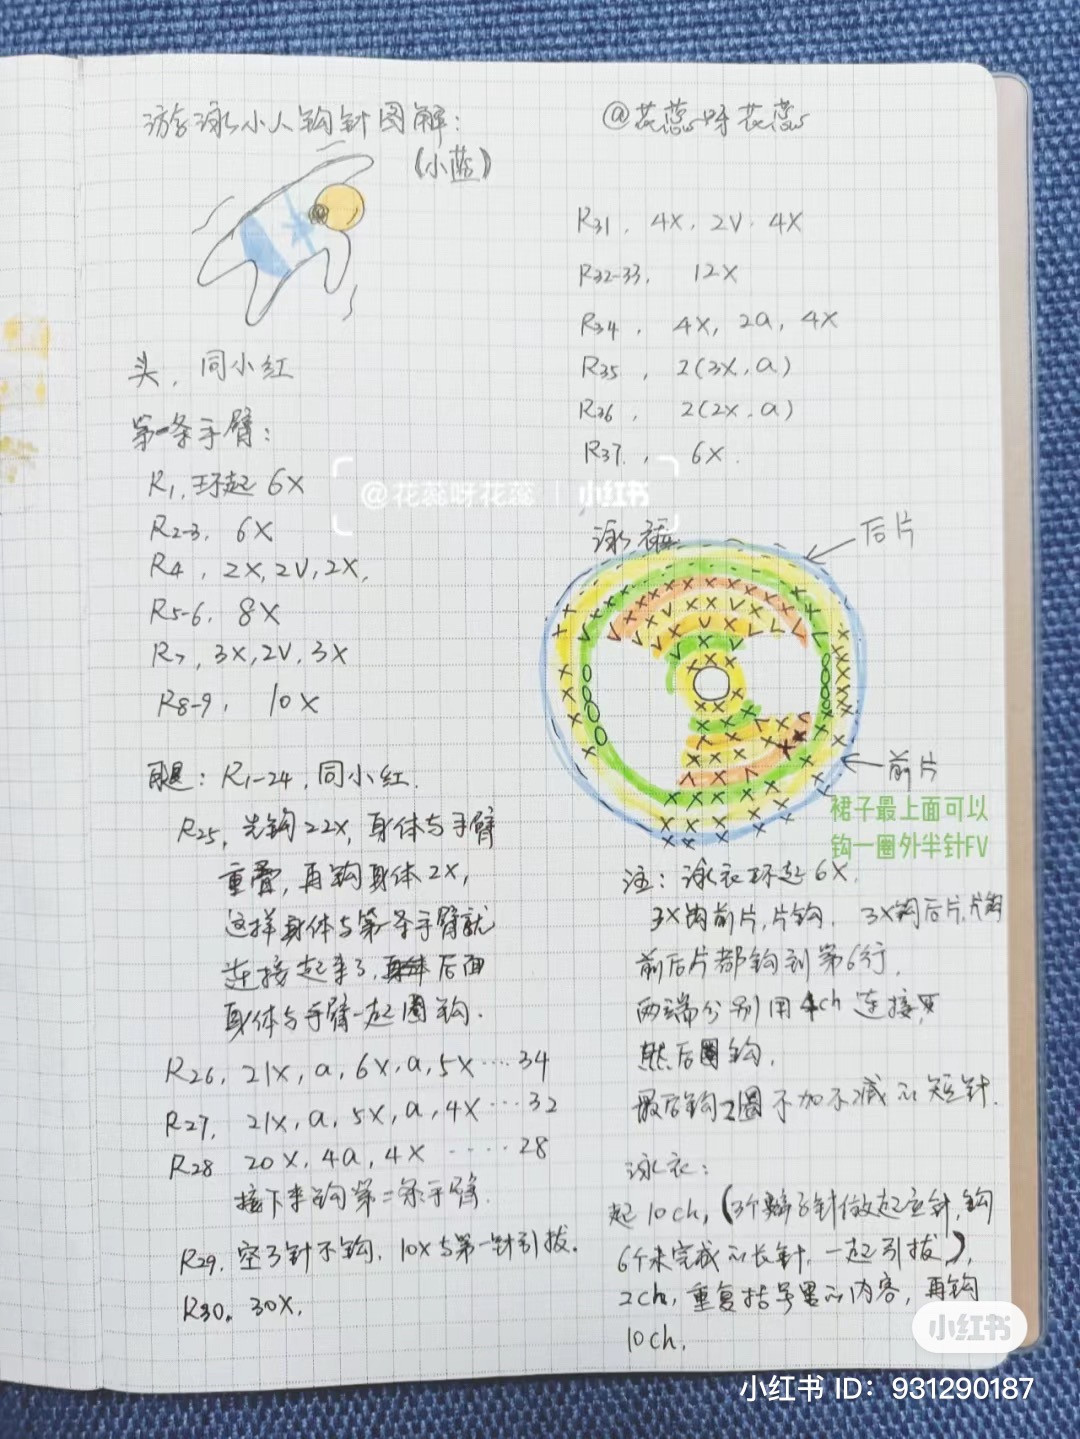 游泳小人钩针图解:
(小蓝)
@花蕊呀花蕊
头, 同小红
第一条手臂:
R1, 环起 6X
R2-3, 6X
R4, 2X, 2V, 2X,
R5-6, 8X
R7, 3X, 2V, 3X
R8-9, 10X
腿: R1-24, 同小红.
R25, 先钩22X, 身体与手臂
重叠, 再钩身体2X,
这样身体与第一条手臂就
连接起来了, 后面
身体与手臂一起圈钩.
R26, 21X, a, 6X, a, 5X ··· 34
R27, 21X, a, 5X, a, 4X ··· 32
R28 20X, 4a, 4X ···· 28
接下来钩第二条手臂.
R29, 空3针不钩, 10X与第一针引拔.
R30. 30X.
R31, 4X, 2V, 4X
R32-33, 12X
R34, 4X, 2a, 4X
R35, 2(3X, a)
R36, 2(2X, a)
R37, 6X.
@花蕊呀花蕊 | 小红书
泳裤
后片
前片
裙子最上面可以
钩一圈外半针FV
注: 泳衣环起6X,
3X钩前片, 片钩, 3X钩后片, 片钩
前后片都钩到第6行,
两端分别用4ch连接,
然后圈钩,
最后钩2圈不加不减的短针.
泳衣:
起10ch, (3个辫子针做起立针, 钩
6个未完成的长针, 一起引拔),
2ch, 重复括号里的内容, 再钩
10ch.
小红书
小红书 ID: 931290187